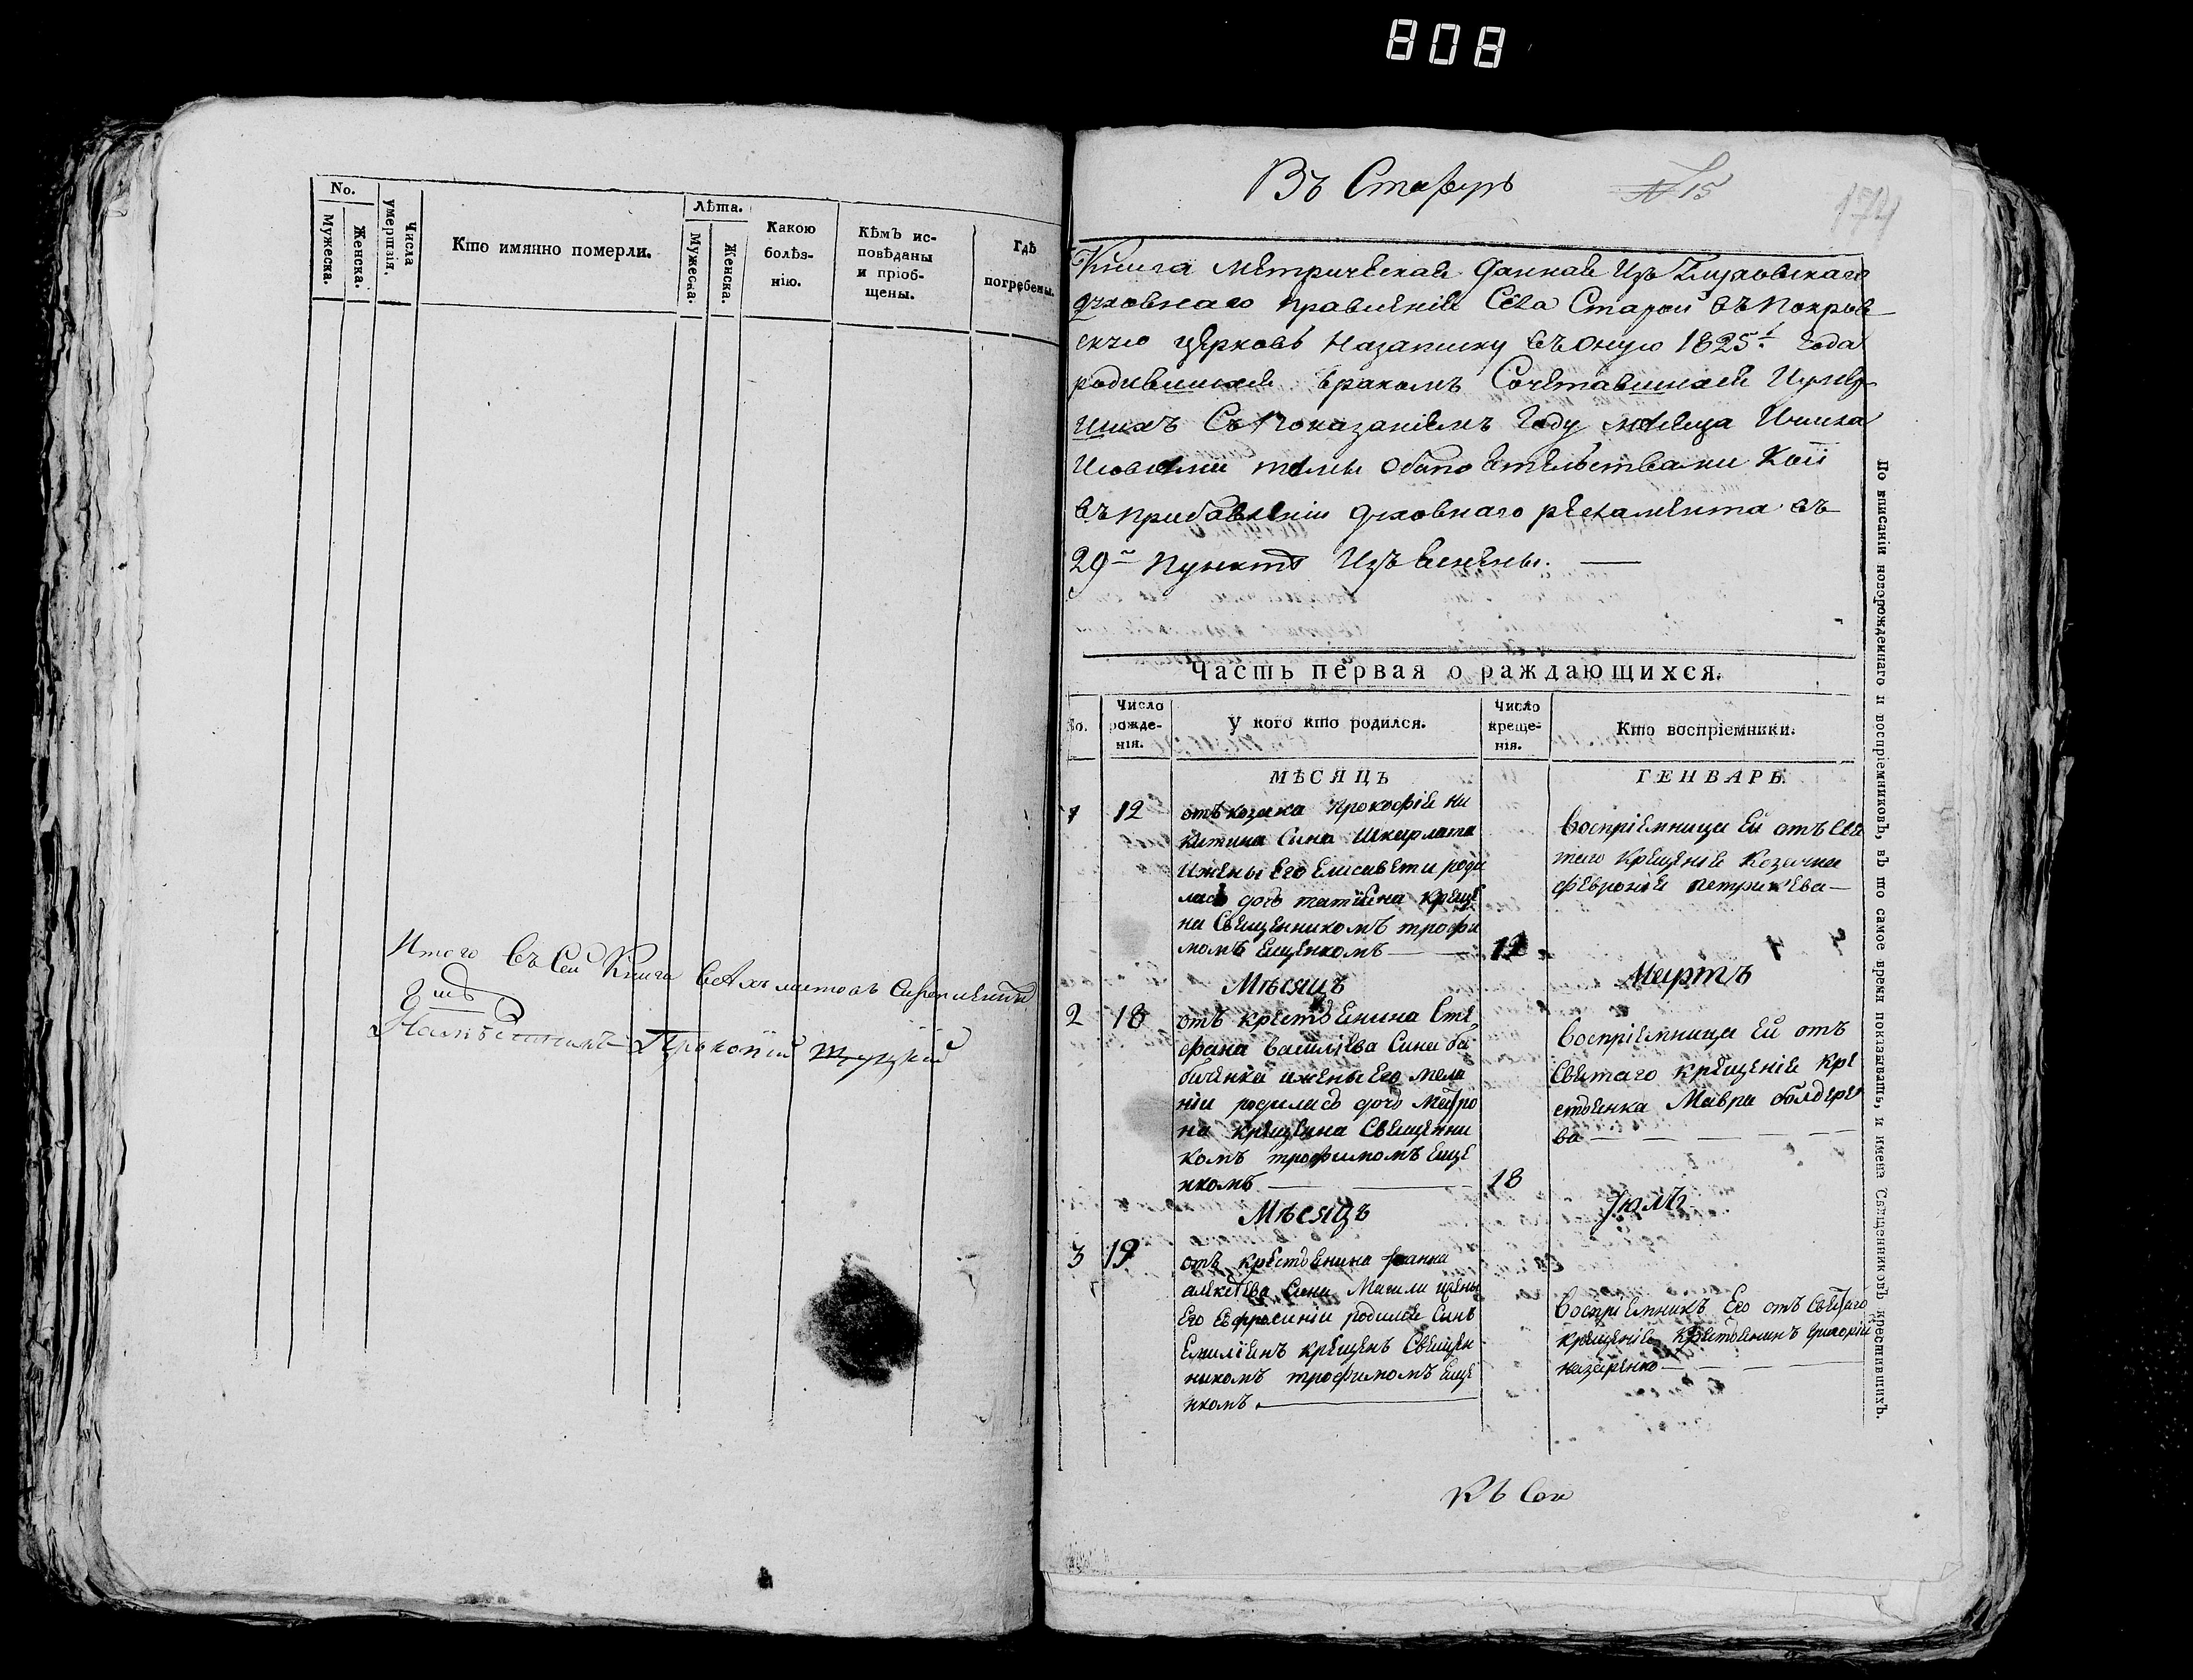 808
No.
Мужеска.
Женска.
Числа умертвія.
Кто имянно померли.
Лѣта.
Мужеска.
Женска.
Какою
болѣз-
нію.
Кѣмъ ис-
повѣданы
и пріоб-
щены.
Гдѣ
погребены.
Итого въ сей Книги листовъ
Прокопій
Въ Старую
№ 15
174
Книга метрическая данная Изъ Глуховскаго
духовнаго правленія Села Старой въ Покров
скую церковь На записку въ оную 1825. года
родившихся бракомъ Сочетавшихся И умер
шихъ Съ Показаніемъ Году мѣсяца И числа
И со всѣми тѣми обстоятельствами Кои
въ прибавленіи духовнаго регламента въ
29 м Пунктѣ Изъяснены. —
Часть первая о раждающихся.
No.
Число
рожде-
нія.
У кого кто родился.
Число
креще-
нія.
Кто воспріемники.
МѢСЯЦЪ
ГЕНВАРЬ.
1 12 отъ козака прокофія ни
китина Сина Шкарлата
И жены Его Елисавети роди
лась дочь татіяна Креще
на Священникомъ трофи
момъ Ященкомъ — 12
воспріемница Ей отъ Свя
таго Крещенія Козачка
феvронія петрик'ева —
Мѣсяцъ
Мартъ
2 18 отъ крестьянина Сте
фана василіева Сина ба
биченка и жены Его мела
ніи родилась дочь Матро
на крещена Священни
комъ трофимомъ Яще
нкомъ — 18
воспріемница Ей отъ
Святаго крещенія кре
стьянка Мавра болдаре
ва —
Мѣсяцъ
Іюль
3 19 отъ крестьянина Іоанна
алексѣева Сина Магили и жены
Его Ефросиніи родился Синъ
Емиліянъ крещенъ Священ
никомъ трофимомъ Яще
нкомъ. —
воспріемникъ Его отъ Святаго
крещенія крестьянинъ григорій
назаренко —
По вписаніи новорожденнаго и воспріемниковъ, въ то самое время показывать, и имена Священниковъ крестившихъ.